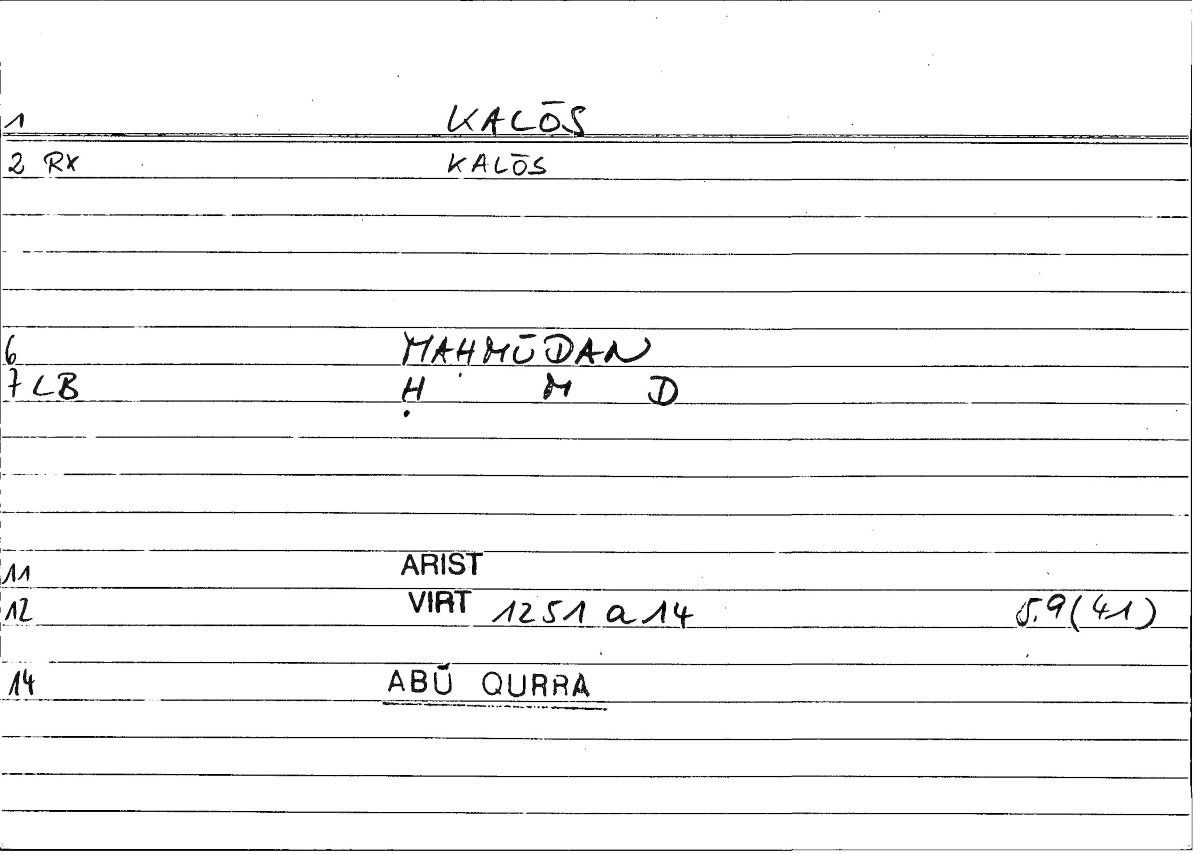 1 KALŌS
2 RX KALŌS
6 MAḤMŪDAN
7 LB Ḥ M D
11 ARIST
12 VIRT 1251 a 14 5.9 (41)
14 ABŪ QURRA